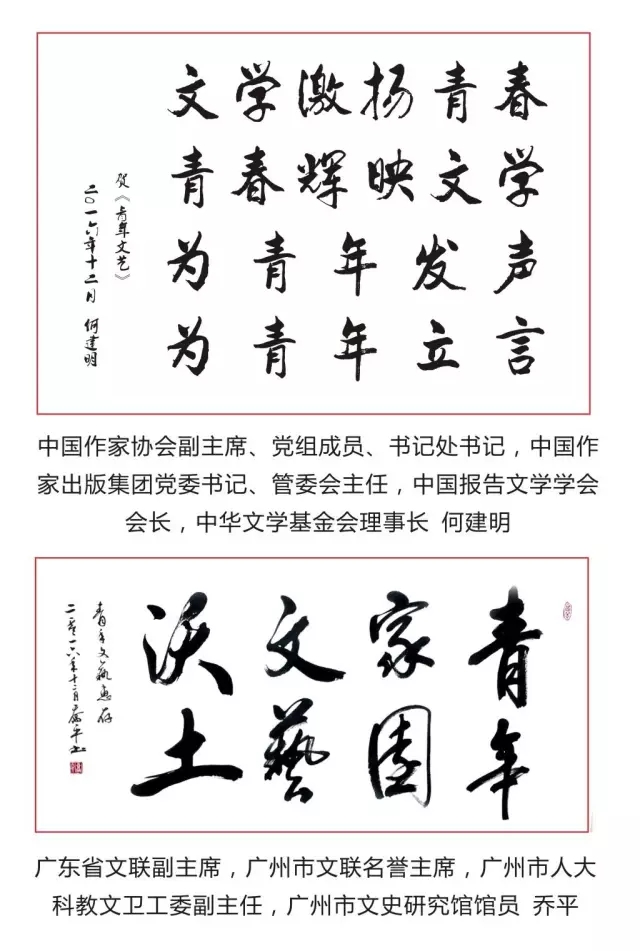 文学激扬青春
青春辉映文学
为青年发声
为青年立言
贺《青年文艺》
二〇一六年十二月 何建明
中国作家协会副主席、党组成员、书记处书记，中国作
家出版集团党委书记、管委会主任，中国报告文学学会
会长，中华文学基金会理事长 何建明
青年
家园
文艺
沃土
青年文艺惠存
二零一六年十二月乔平书
广东省文联副主席，广州市文联名誉主席，广州市人大
科教文卫工委副主任，广州市文史研究馆馆员 乔平